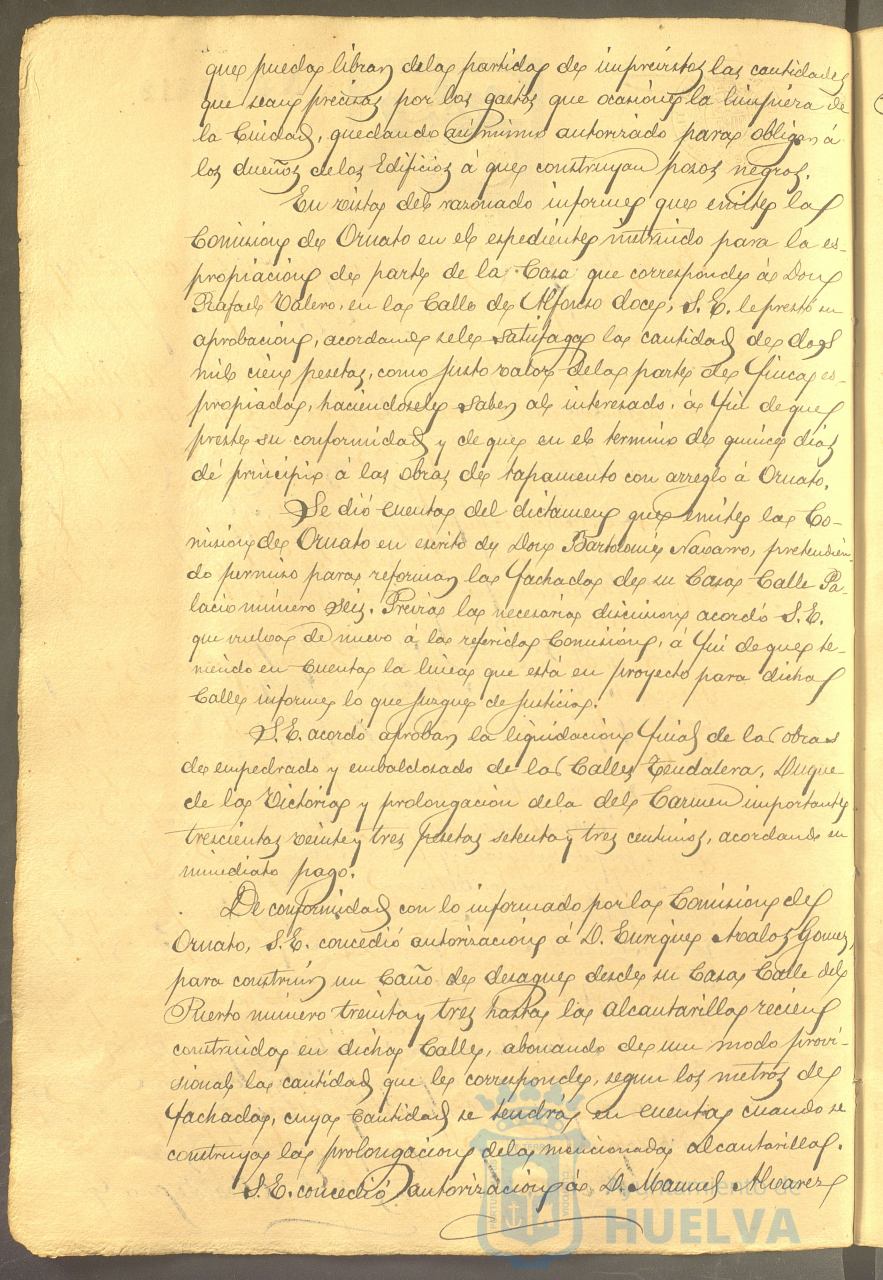 que pueda librar de la partida de imprevistos las cantidades
que sean precisas por los gastos que ocasione la limpieza de
la Ciudad, quedando asimismo autorizado para obligar á
los dueños de los Edificios á que construyan pozos negros.
En vista del razonado informe que emite la
Comision de Ornato en el espediente instruido para la es-
propiacion de parte de la Casa que corresponde á Don
Rafael Valero, en la Calle de Alfonso doce, S. E. le prestó su
aprobacion, acordando se le satisfaga la cantidad de dos
mil cien pesetas, como justo valor de la parte de finca es-
propiada, haciendosele saber al interesado, á fin de que
preste su conformidad y de que en el termino de quince dias
dé principio á las obras de tapamento con arreglo á Ornato.
Se dió cuenta del dictamen que emite la Co-
mision de Ornato en escrito de Don Bartolomé Navarro, pretendien-
do permiso para reformar la fachada de su Casa Calle Pa-
lacio número Seis. Previa la necesaria discusion acordó S. E.
que vuelva de nuevo á la referida Comision, á fin de que te-
niendo en cuenta la linea que está en proyecto para dicha
Calle informe lo que juzgue de justicia.
S. E. acordó aprobar la liquidacion final de las obras
de empedrado y embaldosado de las Calles Tendalera, Duque
de la Victoria y prolongacion de la del Carmen importante
trescientas veinte y tres pesetas setenta y tres centimos, acordando su
inmediato pago.
De conformidad con lo informado por la Comision de
Ornato, S. E. concedió autorizacion á D. Enrique Avalos Gomez,
para construir un Caño de desague desde su Casa Calle del
Puerto número treinta y tres hasta la alcantarilla recien
construida en dicha Calle, abonando de un modo provi-
sional la cantidad que le corresponde, segun los metros de
fachada, cuya cantidad se tendrá en cuenta cuando se
construya la prolongacion de la mencionada alcantarilla.
S. E. concedió autorizacion á D. Manuel Alvarez
Ayuntamiento de
HUELVA